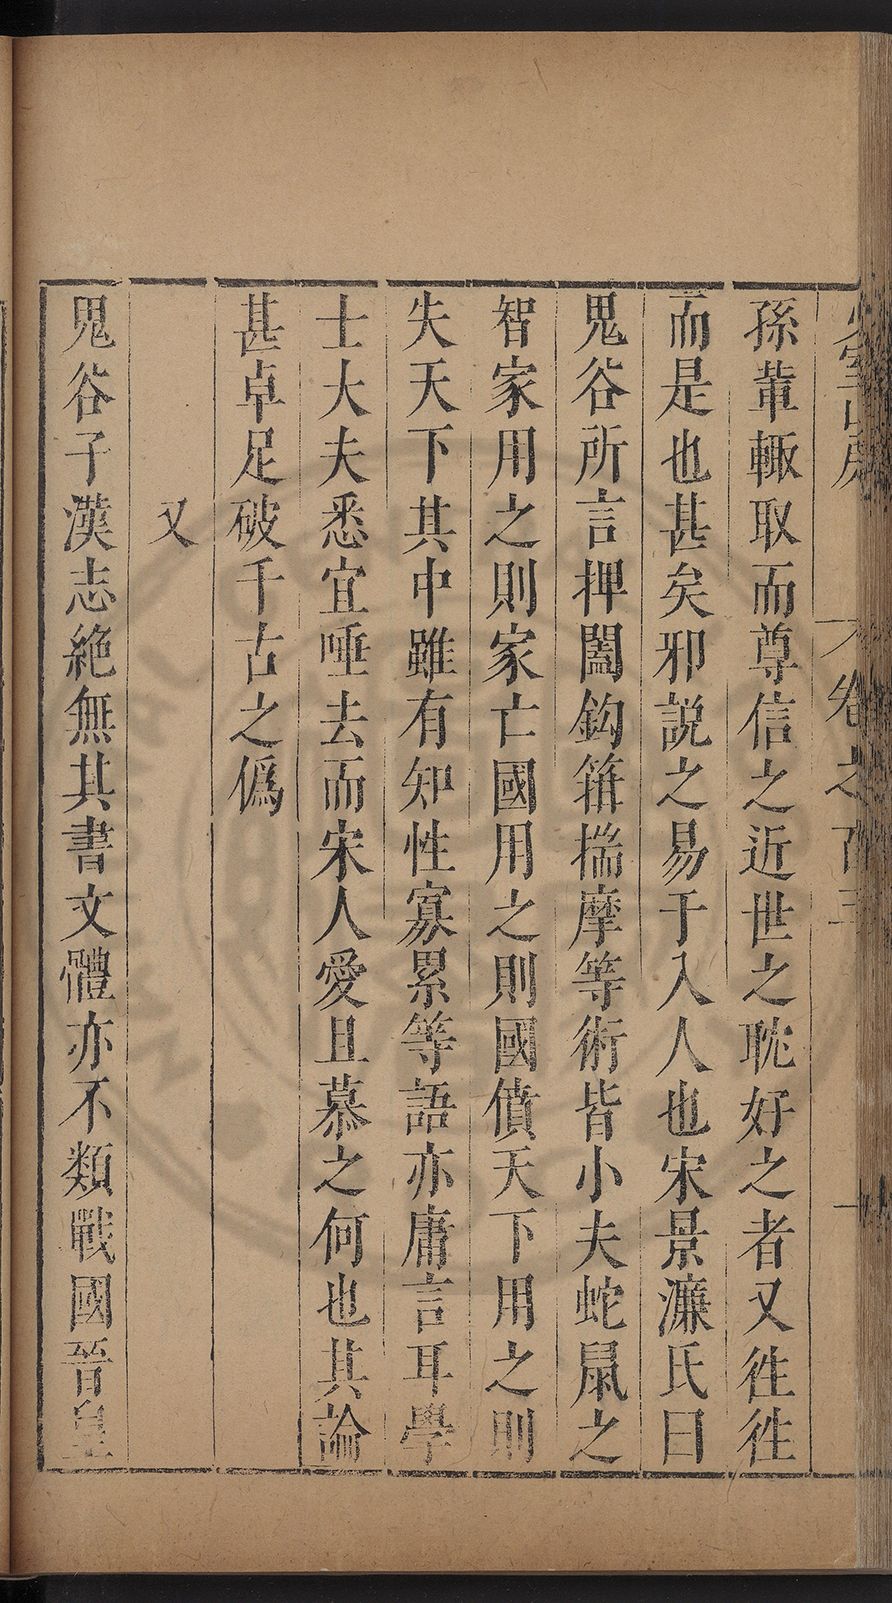 孫輩輙取而尊信之近世之耽好之者又徃徃
而是也甚矣邪説之易于入人也宋景濂氏曰
鬼谷所言捭闔鈎箝揣摩等術皆小夫蛇鼠之
智家用之則家亡國用之則國僨天下用之則
失天下其中雖有知性寡累等語亦庸言耳學
士大夫悉宜唾去而宋人愛且慕之何也其論
甚卓足破千古之僞
又
鬼谷子漢志絶無其書文體亦不類戰國晉皇